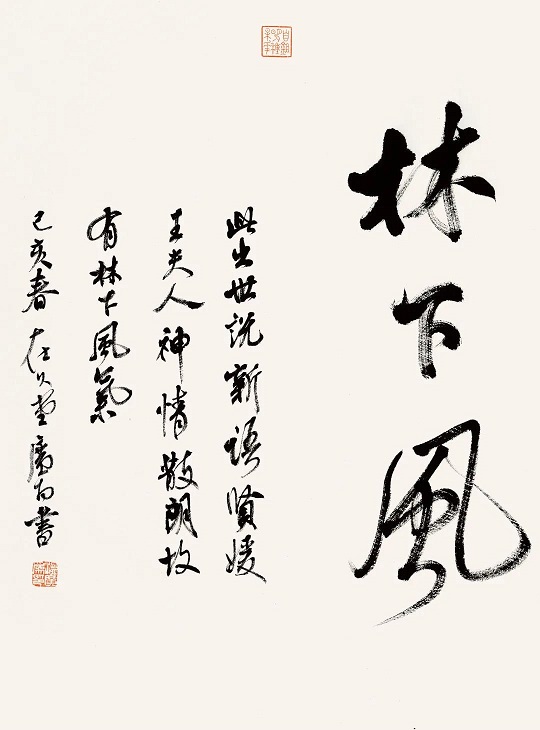 林下風
此出世説新語賢媛
王夫人神情散朗故
有林下風氣
己亥春 書